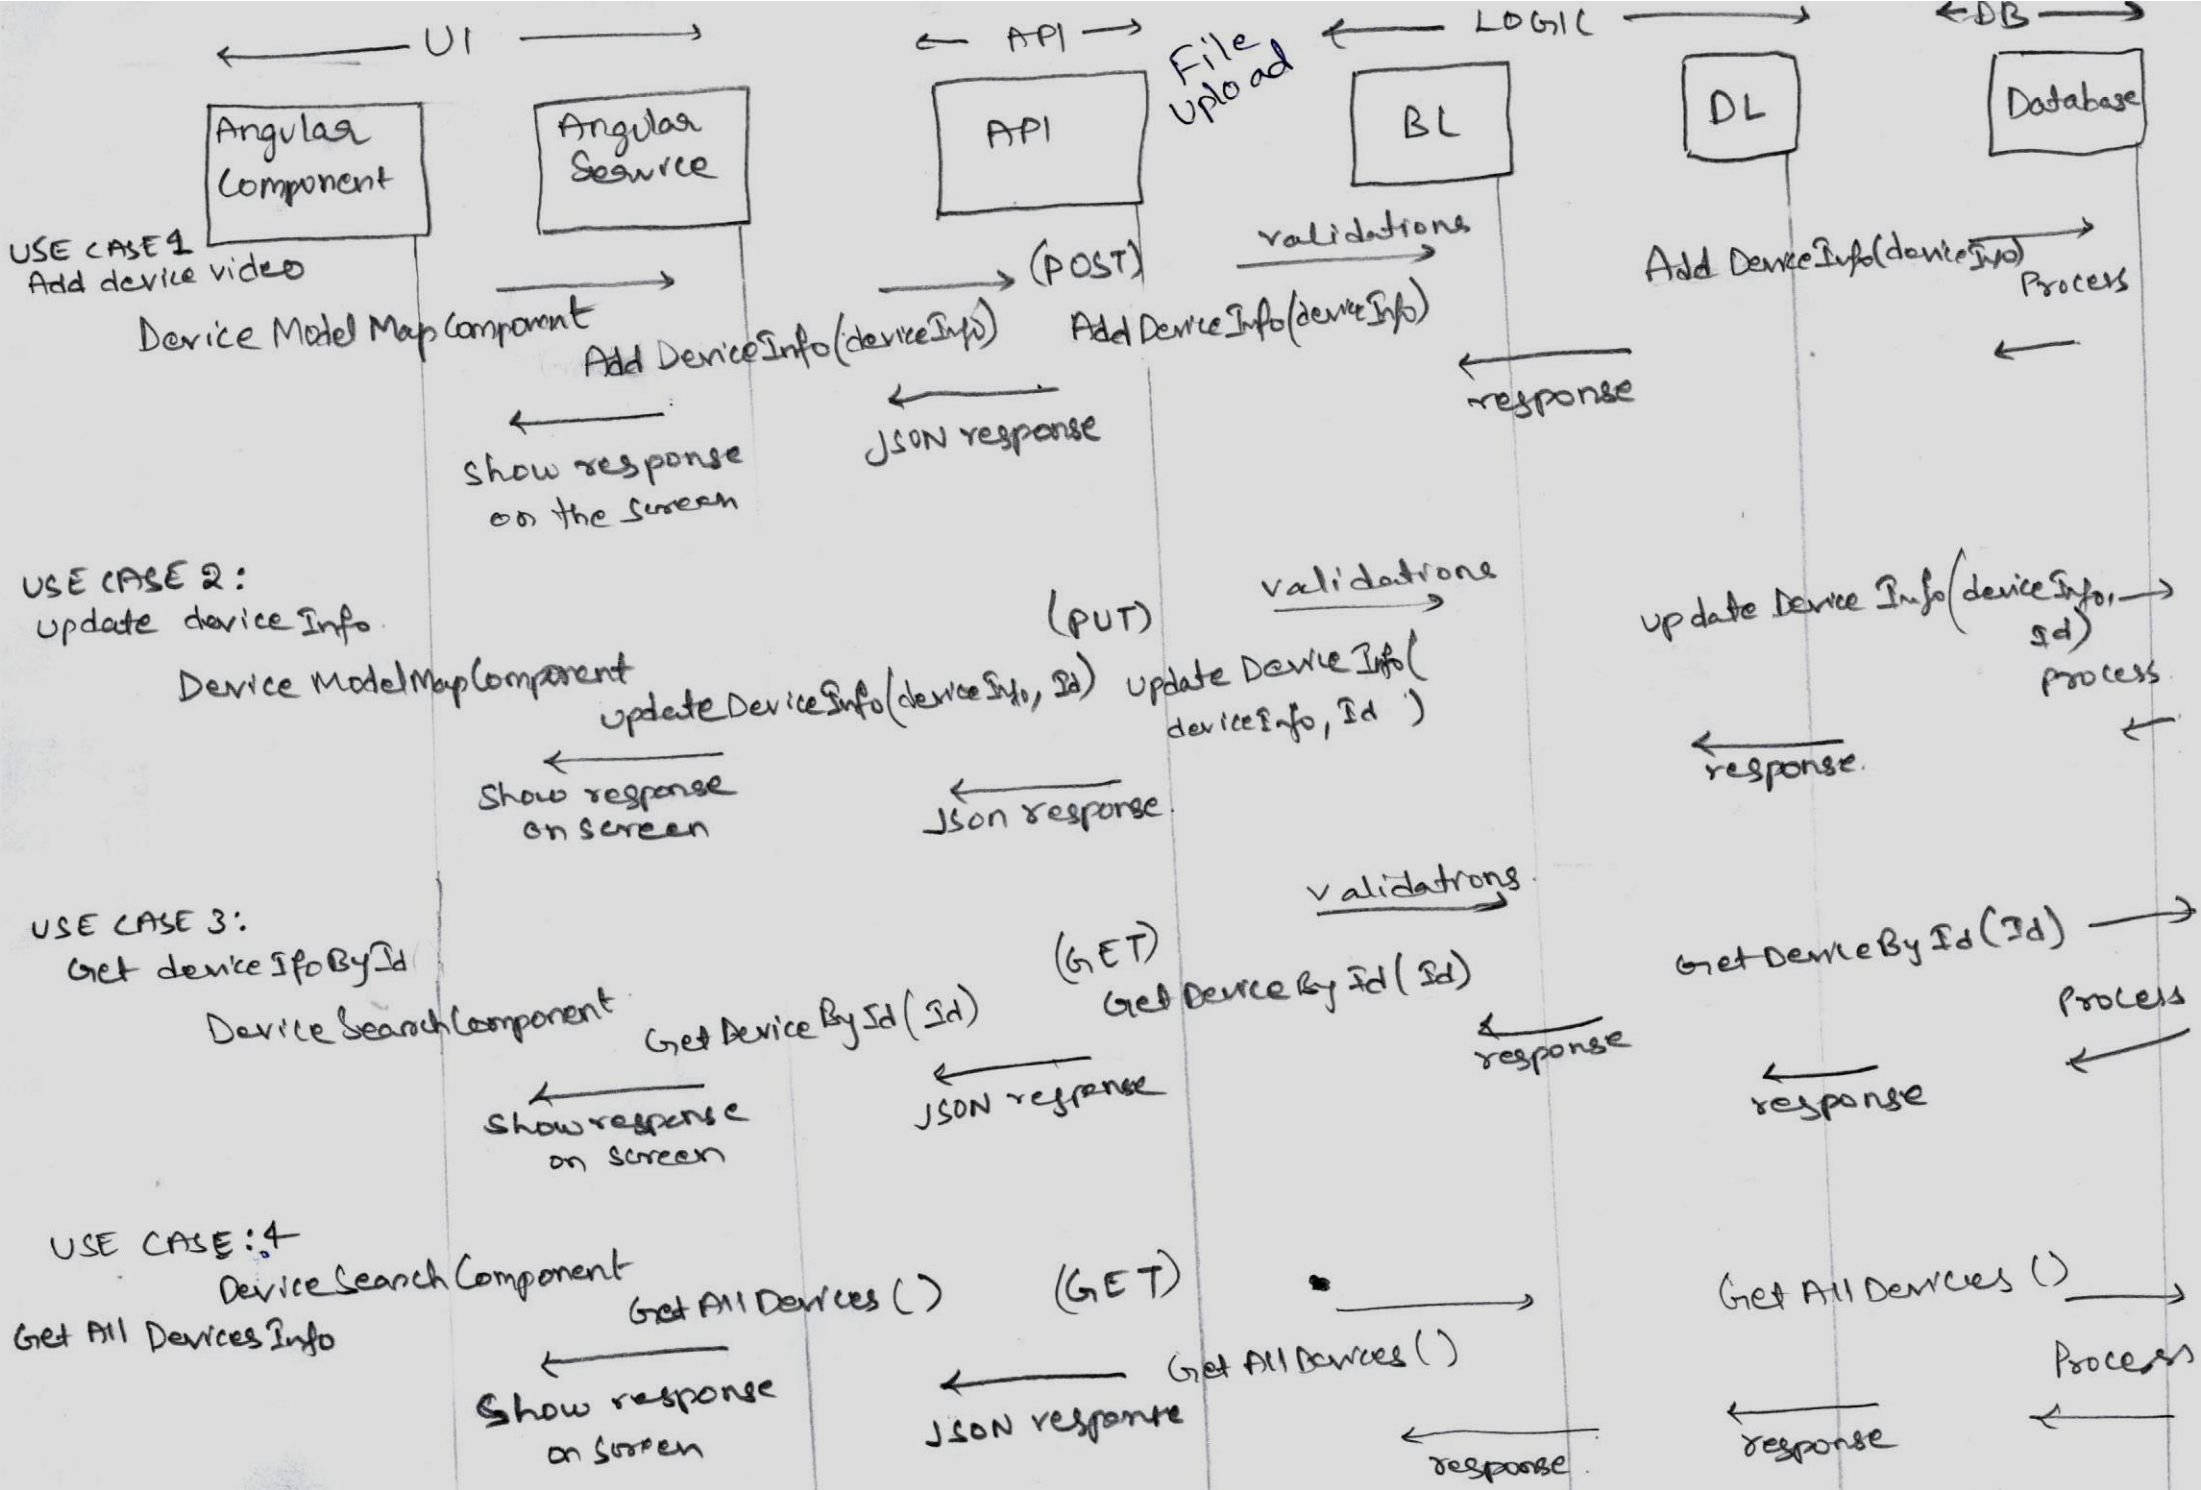 UI
API
File
Upload
LOGIC
DB
Angular
Component
Angular
Service
API
BL
DL
Database
USE CASE 1
Add device video
Device Model Map Component
Add DeviceInfo(deviceInfo)
(POST)
Add DeviceInfo(deviceInfo)
validations
Add DeviceInfo(deviceInfo)
Process
response
JSON response
Show response
on the screen
USE CASE 2:
update deviceInfo
Device ModelMapComponent
updateDeviceInfo(deviceInfo, Id)
(PUT)
update DeviceInfo(
deviceInfo, Id )
validations
update Device Info(deviceInfo,
Id)
process
response.
Json response.
Show response
on screen
USE CASE 3:
Get deviceIfoById
DeviceSearchComponent
Get DeviceById(Id)
(GET)
Get DeviceById(Id)
validations.
GetDeviceById(Id)
Process
response
response
JSON response
Show response
on screen
USE CASE:4
DeviceSearchComponent
Get All DevicesInfo
Get All Devices()
(GET)
Get All Devices()
Get All Devices()
Process
response
response.
JSON response
Show response
on screen